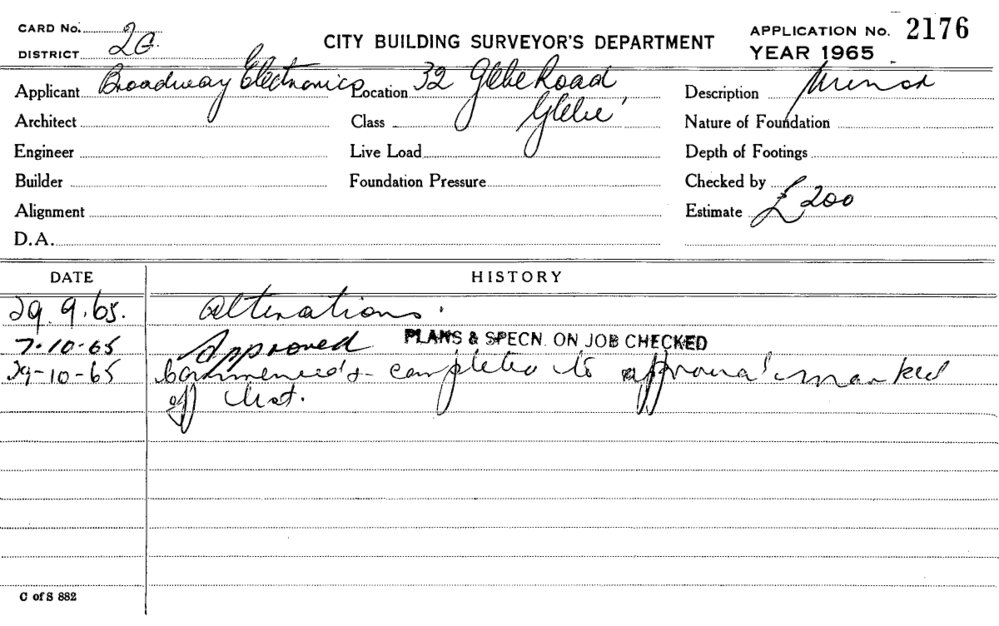 CARD No. 2G. CITY BUILDING SURVEYOR'S DEPARTMENT APPLICATION No. 2176
DISTRICT YEAR 1965
Applicant Broadway Electronics Location 32 Glebe Road Description Minor
Architect Class Glebe Nature of Foundation
Engineer Live Load Depth of Footings
Builder Foundation Pressure Checked by
Alignment Estimate £200
D.A.
DATE HISTORY
29.9.65. Alterations.
7-10-65 Approved PLANS & SPECN. ON JOB CHECKED
29-10-65 Commenced & completed to approval marked
off
C of S 882